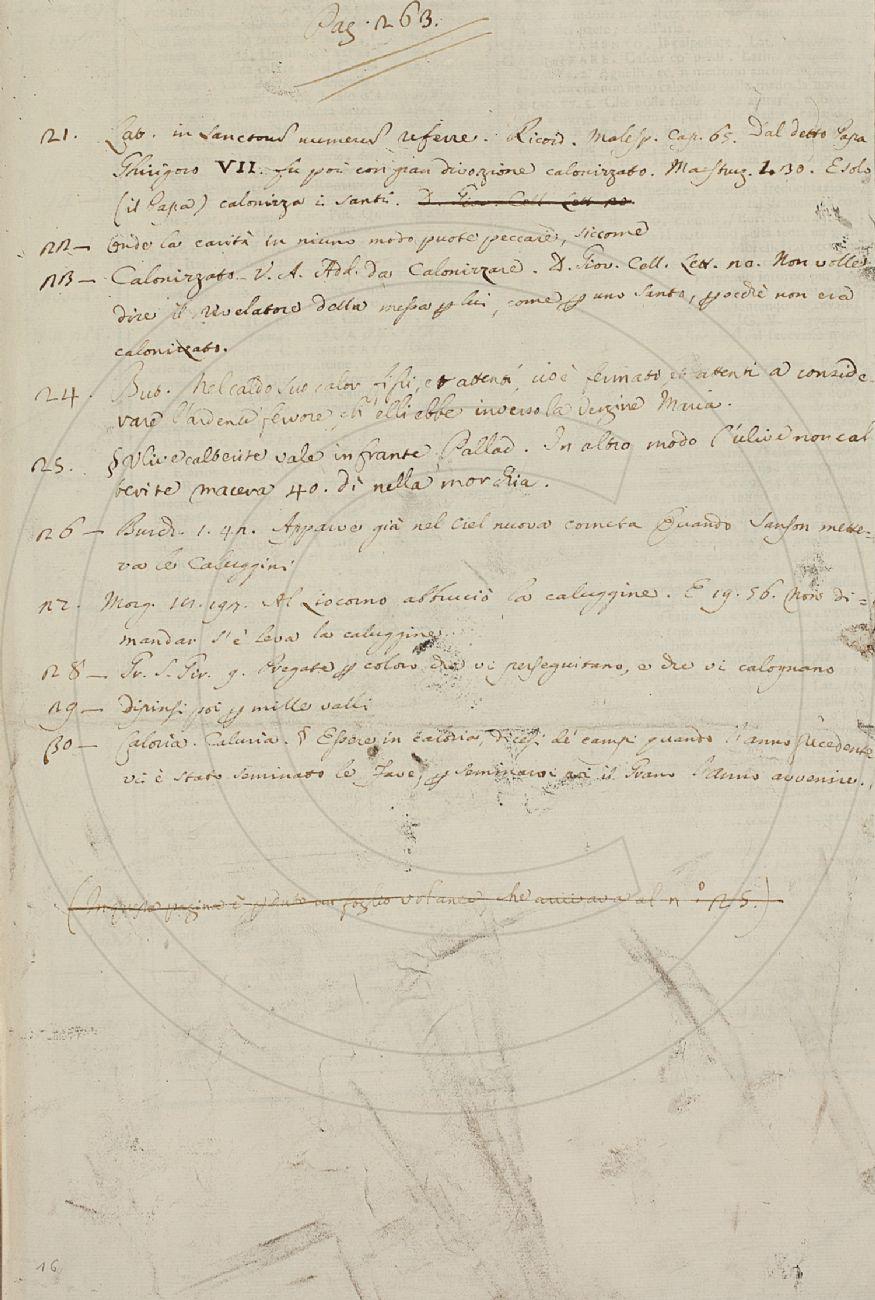 Pag. 263.
21. Lat. in sanctorũ numerũ referre. Ricord. Malesp. Cap. 65. Dal detto Papa
Ghirigoro VII. fu poi con gran divozione calonizzato. Maestruz. 1. 30. E solo
(il Papa) calonizza i santi. D. Gio. Cell. Lett. 20.
22 — Onde la carità in niuno modo puote peccare, siccome
23 — Calonizzato V. A. Add. da Calonizzare. D. Giov. Cell. Lett. 20. Non volle
dire il rivelatore della messa ꝑ lui, come ꝑ uno santo, ꝑocchè non era
calonizzato.
24. But. Nel caldo suo calor fissi, et attenti, cioè fermato, et attenti a conside-
rare l'ardente fervore, ch' elli ebbe inverso la Vergine Maria.
25. § Ulive calterite vale infrante. Pallad. In altro modo l'ulive non cal
terite macera 40. dì nella morchia.
26 — Burch. 1. 42. Apparve già nel Ciel nuova cometa Quando Sanson mette=
va le Caluggini
27. Morg. 14. 197. Al Liocorno abbruciò la caluggine. E 19. 56. Non di=
mandar s'e' leva la caluggine
28 — Gr. S. Gir. 9. Pregate ꝑ coloro che vi perseguitano, e che vi calognano
29 — Dipinsi poi ꝑ mille valli
30 — Caloria. Caluria. § Essere in caloria, dicesi de' campi quando l'anno p̃cedente
vi è stato seminato le fave, ꝑ seminarvi poi il Grano l'anno avvenire.
(In questa pagina è ꝑduto un foglio volante che arrivava al n.° 25.)
16